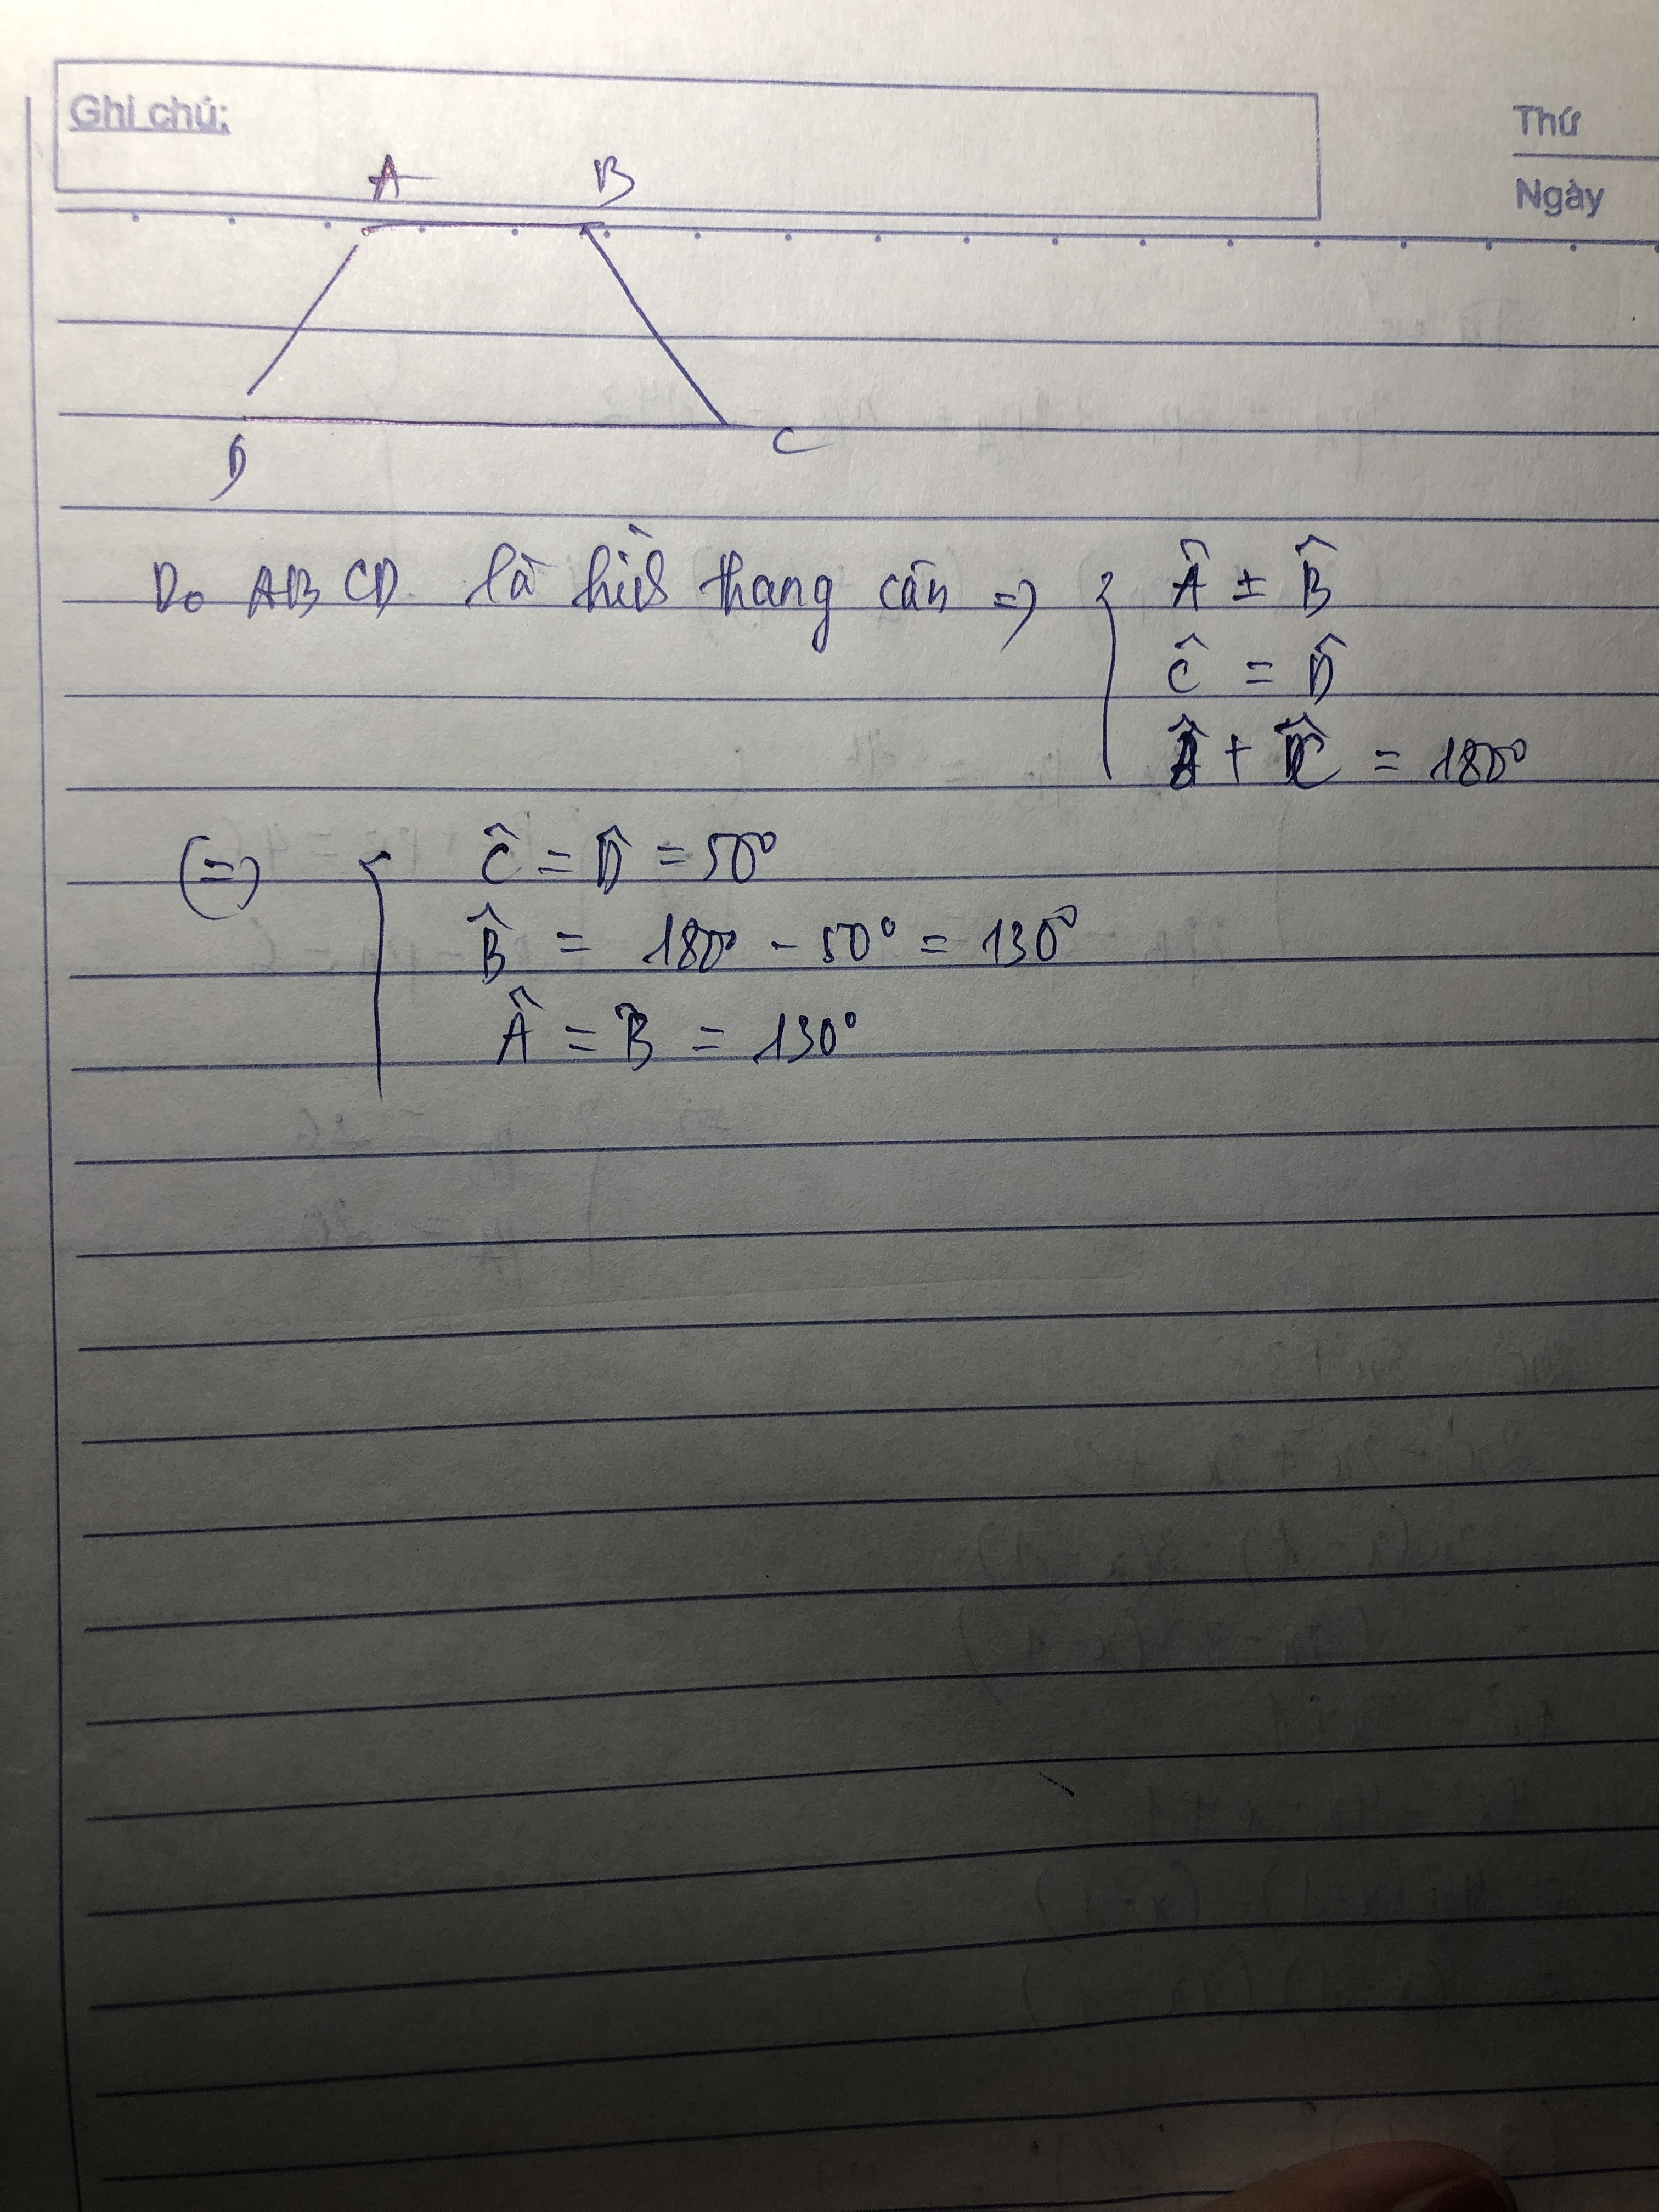 Ghi chú:
Thứ
Ngày
A B
D C
Do ABCD là hình thang cân => { Â = B̂
Ĉ = D̂
Â + Ĉ = 180°
(=) { Ĉ = D̂ = 50°
B̂ = 180° - 50° = 130°
Â = B̂ = 130°